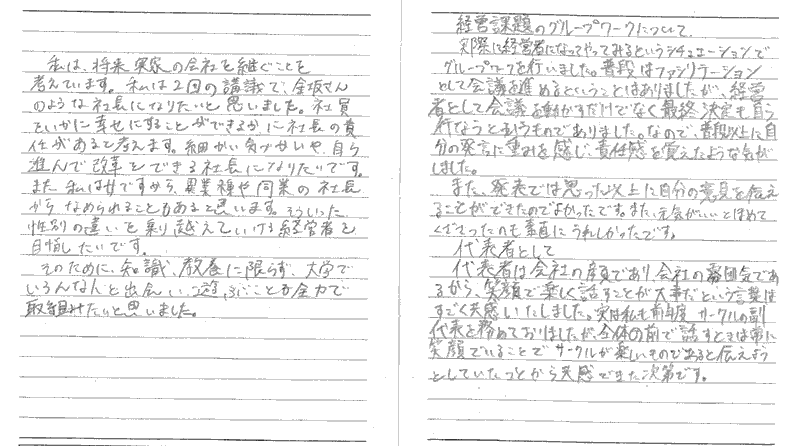 私は、将来 実家の会社を継ぐことを
考えています。私は2回の講議で、金坂さん
のような社長になりたいと思いました。社員
をいかに幸せにすることができるかに社長の責
任があると考えます。細かい気づせいや、自ら
進んで改革をできる社長になりたいです。
また、私は女ですから、異業種や同業の社長
から なめられることもあると思います。そういった
性別の違いを乗り越えていける経営者を
目指したいです。
そのために、知識、教養に限らず、大学で
いろんな人と出会い、遊ぶことも全力で
取組みたいと思いました。
経営課題のグループワークについて
実際に経営者になってやってみるというシチュエーションで
グループワークを行いました。普段はファシリテーション
として会議を進めるということはありましたが、経営
者として会議を動かすだけでなく最終決定も自ら
行なうというものでありました。なので、普段以上に自
分の発言に重みを感じ、責任感を覚えたような気が
しました。
また、発表では思った以上に自分の意見を伝え
ることができたのでよかったです。また、元気がいいとほめて
くださったのも素直にうれしかったです。
代表者として
代表者は会社の顔であり、会社の雰囲気であ
るから、笑顔で楽しく話すことが大事だという言葉は
すごく共感いたしました。実は私も前年度 サークルの副
代表を務めておりましたが、全体の前で話すときは常に
笑顔でいることでサークルが楽しいものであると伝えよう
としていたことから共感できた次第です。